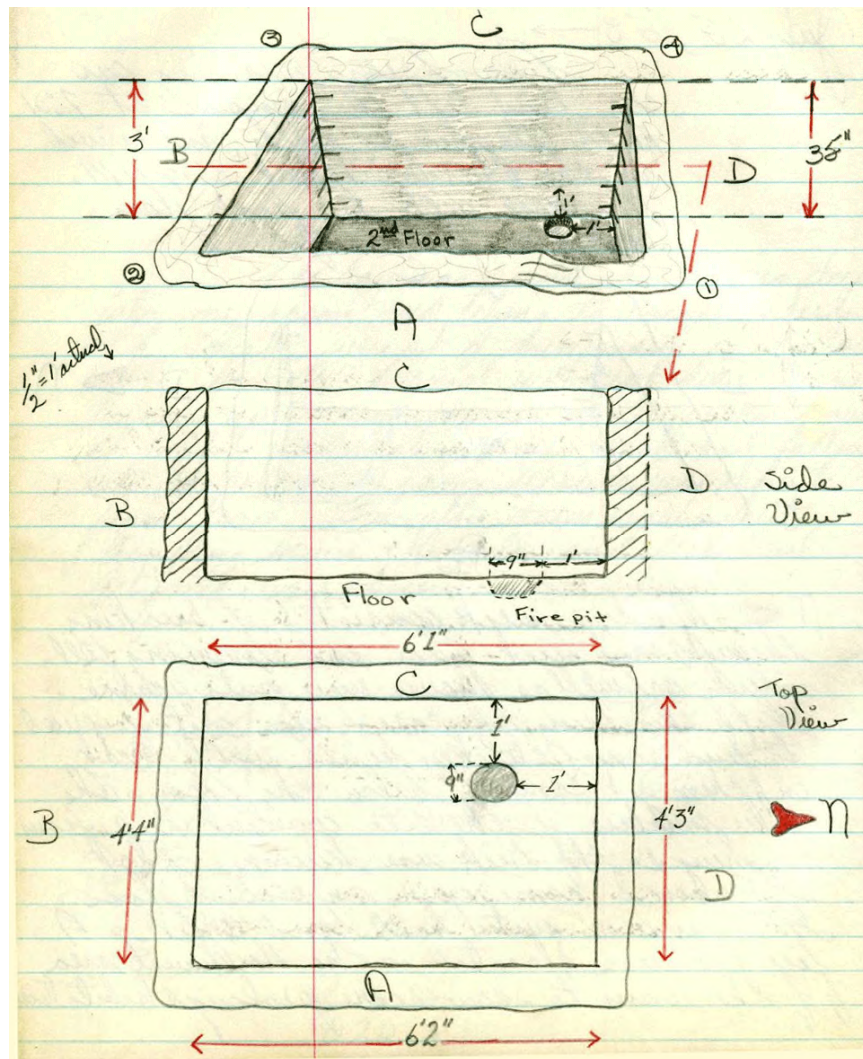 C
③ ④
3' 35"
B D
1'
1'
2nd Floor
② ①
A
1/2" = 1' actual
C
B D Side
View
9" 1'
Floor
Fire pit
6'1"
C Top
View
1'
9" 1'
B 4'4" 4'3" n
D
A
6'2"